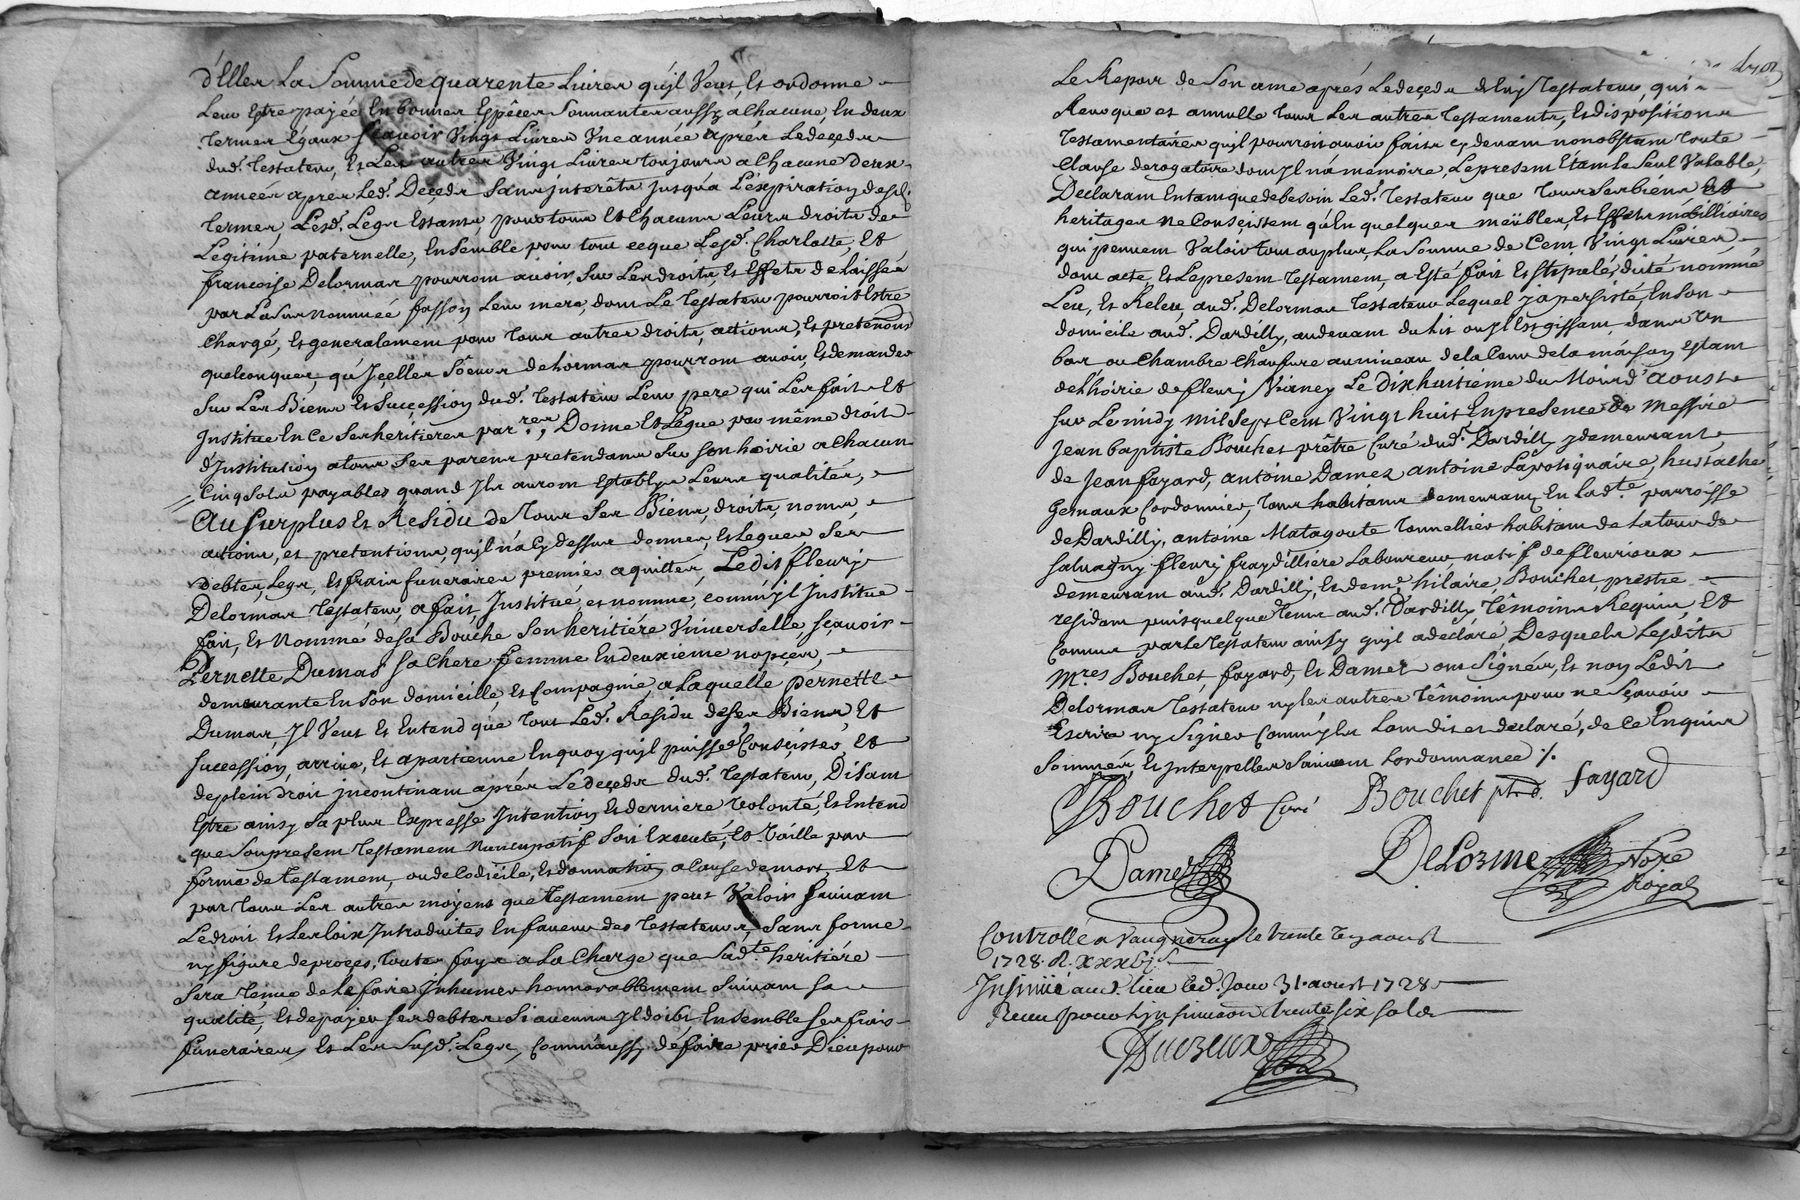 d'Elles La Somme de quarente Livres qu'jl Veut, Et ordonne
Leur Estre payée En bonnes Espêces Sonnantes aussy a Chacune, En deux
Termes Egaux Sçauoir Vingt Liures Vne année aprés Le deçeds
dud.t Testateur, Et Les autres Vingt Liures toujours a Chacune deux
années apres Led.t Deçeds Sans jnterêts jusqu'a L'expiration desd.
Termes, Lesd.t Legs Estans, pour tous Et Chacuns Leurs droits de
Legitime paternelle, Ensemble pour tout ce que Lesd.t Charlotte, Et
francoise Delormas pourront auoir, Sur Les droits, Et Effets de Laissés
par La Surnommée fasson, Leur mere, dont Le Testateur pourroit Estre
Chargé, Et generalement pour tous autres droits, actions, Et pretentions
quelconques, qu'Jçelles Sœurs delormas pourront auoir, Et demander
Sur Les Biens Et Succession dud.t Testateur Leur pere qui Les fait Et
Institue En Ce Ses heritieres par.res, Donne Et Legue par même droit
d'Institution a tous Ses parens pretendans Sur Son hoirie a Chacun
Cinq Sols payables quand Jls auront Establys Leurs qualités,
Au Surplus Et Residu de Tous Ses Biens, droits, noms,
actions, et pretentions, qu'jl n'a Cy dessus donnes, Et Legues, Ses
debtes, Legs, Et frais funeraires premier aquittés, Ledit fleury
Delormas Testateur, a fait, Institué, et nommé, comm'jl Institue
fait, Et Nomme de Sa Bouche Son heritiére Vniverselle Sçauoir
Pernette Dumas Sa Chere femme En deuxieme nopçes,
demeurante En Son domicille, Et Compagnie, a Laquelle pernette
Dumas, Jl Veut Et Entend que Tout Led.t Residu de Ses Biens, Et
Succession, arriue, Et apartienne En quoy qu'jl puisse Consister, Et
de plein droit jncontinant aprés Le deçeds dud.t Testateur, Disant
Estre ainsy Sa plus Expresse Intention Et derniere Volonté, Et Entend
que Son present Testament Nuncupatif Soit Executé, Et Vaille par
forme de testament, ou de Codicile, Et donnation a Cause de mort, Et
par tous Les autres moyens que testament peut Valoir Suiuant
Le droit Et Les Loix Introduites En faueur des Testateurs, Sans forme
ny figure de proçes, Toutes foys a La Charge que Sad.te heritiére
Sera Tenue de Le faire Inhumer honnorablement Suiuant Sa
qualité, Et de payer Ses debtes Si aucunes Jl doibt Ensemble Ses frais
funeraires, Et Les Susd.t Legs, Comm'aussy de faire prier Dieu pour
Le Repos de Son ame aprés Le deçeds dud.t Testateur, qui
Reuoque et annulle tous Les autres Testaments, Et dispositions
Testamentaires qu'jl pourroit auoir faits cy deuant nonobstant Toute
Clause derogatoire dont Jl n'a mémoire, Le present Etant Le Seul Valable,
Declarant En tant que de besoin Led.t Testateur que Tous Ses biens Et
heritages ne Consistent qu'En quelques meübles, Et Effets mobilliaires
qui peuuent Valoir tout au plus, La Somme de Cent Vingt Liures,
dont acte, Et Le present Testament, a Esté fait Et Stipulé, dicté nommé
Leu, Et Releu, aud.t Delormas Testateur Lequel j'a persisté, En Son
domicile aud.t Dardilly, au deuant du Lit ou Jl Est gissant, dans Vn
bas ou Chambre Chaufure au niueau de la Cour de la maison Estant
de L'hoirie de fleury Vianey Le dix huitiéme du Mois d'Aoust
Sur Le midy mil Sept Cent Vingt huit En presence de Messire
Jean baptiste Bouchet prêtre Curé dud.t Dardilly y demeurant,
de Jean fayard, antoine Damez antoine Lapotiquaire, hustache
Genaux Cordonnier, tous habitans demeurans En Lad.te parroisse
de Dardilly, antoine Matagoute Tonnellier habitant de La tour de
Saluagny fleury fraydilliére Laboureur natif de fleurieux
demeurant aud.t Dardilly, Et deme. hilaire Bouchet, prestre
residant puis quelque Tems aud.t Dardilly Têmoins Requis, Et
Connus par Le Testateur ainsy qu'jl a declaré, Desquels Lesdits
M.res Bouchet, fayard, Et Damez ont Signés, Et non Ledit
Delormas Testateur ny les autres Têmoins pour ne Sçauoir
Escrire ny Signer Comm'jls L'ont dit et declaré, de ce Enquis
Sommés, Et Interpellés Suiuant L'ordonnance /.
Bouchet Curé Bouchet fayard
Damez DeLorme Nore
Royal
Controllé a Vaugneray le trente
1728.
Insinué aud.t lieu led.t Jour 31 aoust 1728
Receu pour L'jnsinuation trente six sols